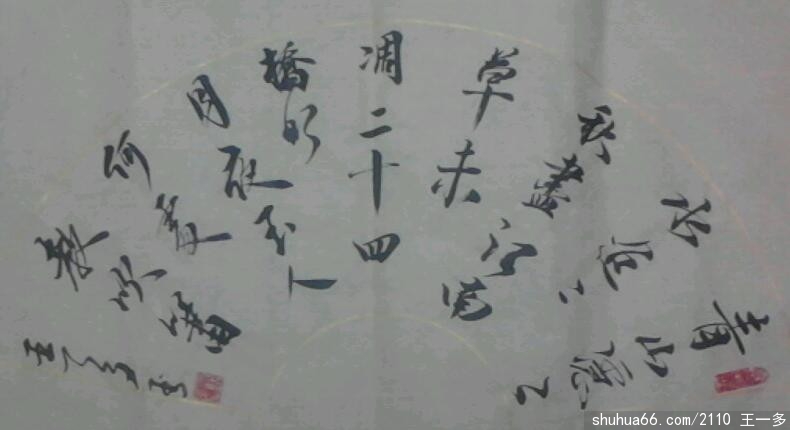 青山隱々
水迢々
秋盡江南
草未
凋二十四
橋明
月夜玉人
何處
教吹簫
王一多書
shuhua66.com/2110 王一多